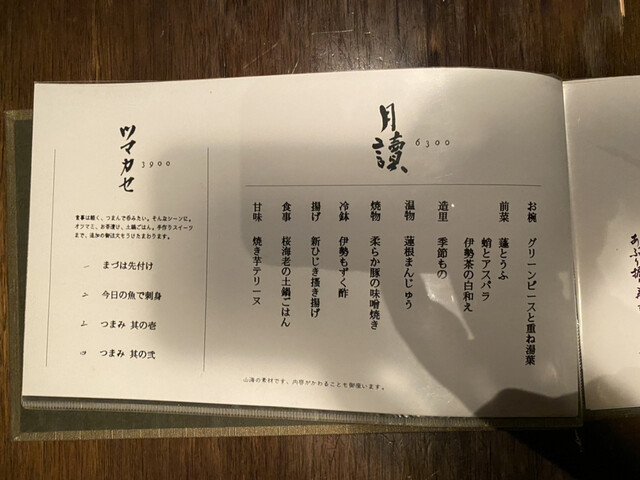 月讀
6300
お椀 グリーンピースと重ね湯葉
前菜 蓬とうふ
蛸とアスパラ
伊勢茶の白和え
造里 季節もの
温物 蓮根まんじゅう
焼物 柔らか豚の味噌焼き
冷鉢 伊勢もずく酢
揚げ 新ひじき掻き揚げ
食事 桜海老の土鍋ごはん
甘味 焼き芋テリーヌ
山海の素材です、内容がかわることも御座います。
ツマカセ
3900
食事は軽く、つまんで呑みたい。そんなシーンに。
オツマミと、お茶漬け、土鍋ごはん、手作りスイーツ
まで、追加の御注文もうけたまわります。
一 まづは先付け
二 今日の魚で刺身
三 つまみ 其の壱
四 つまみ 其の弐